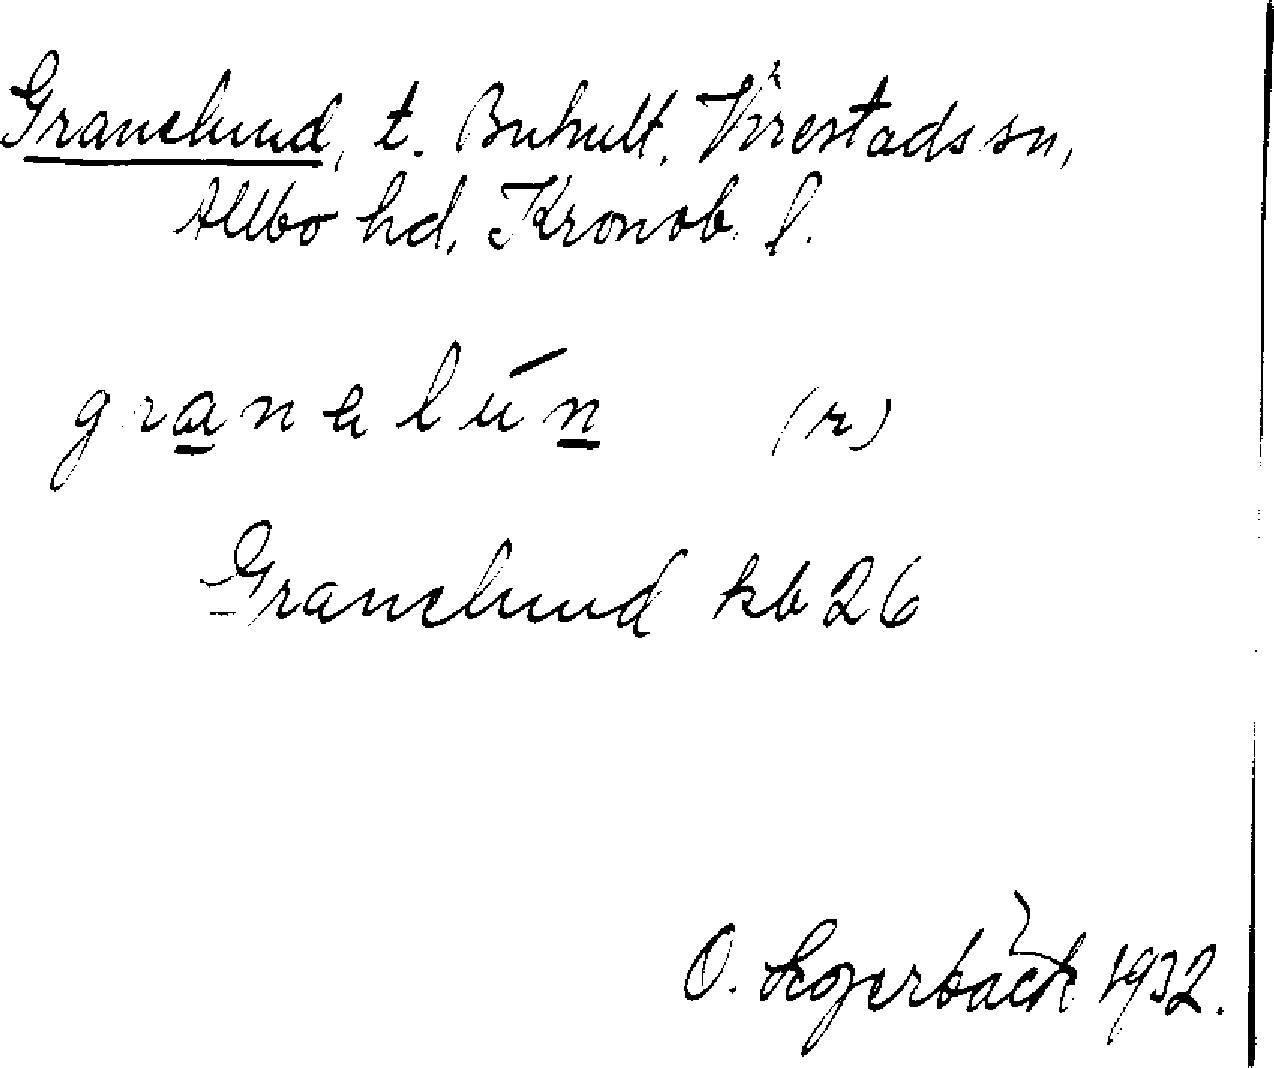 Granelund, t. Buhult, Virestads sn,
Allbo hd, Kronob. l.
granelún (r)
Granelund kb 26
O. Segerbäck 1932.